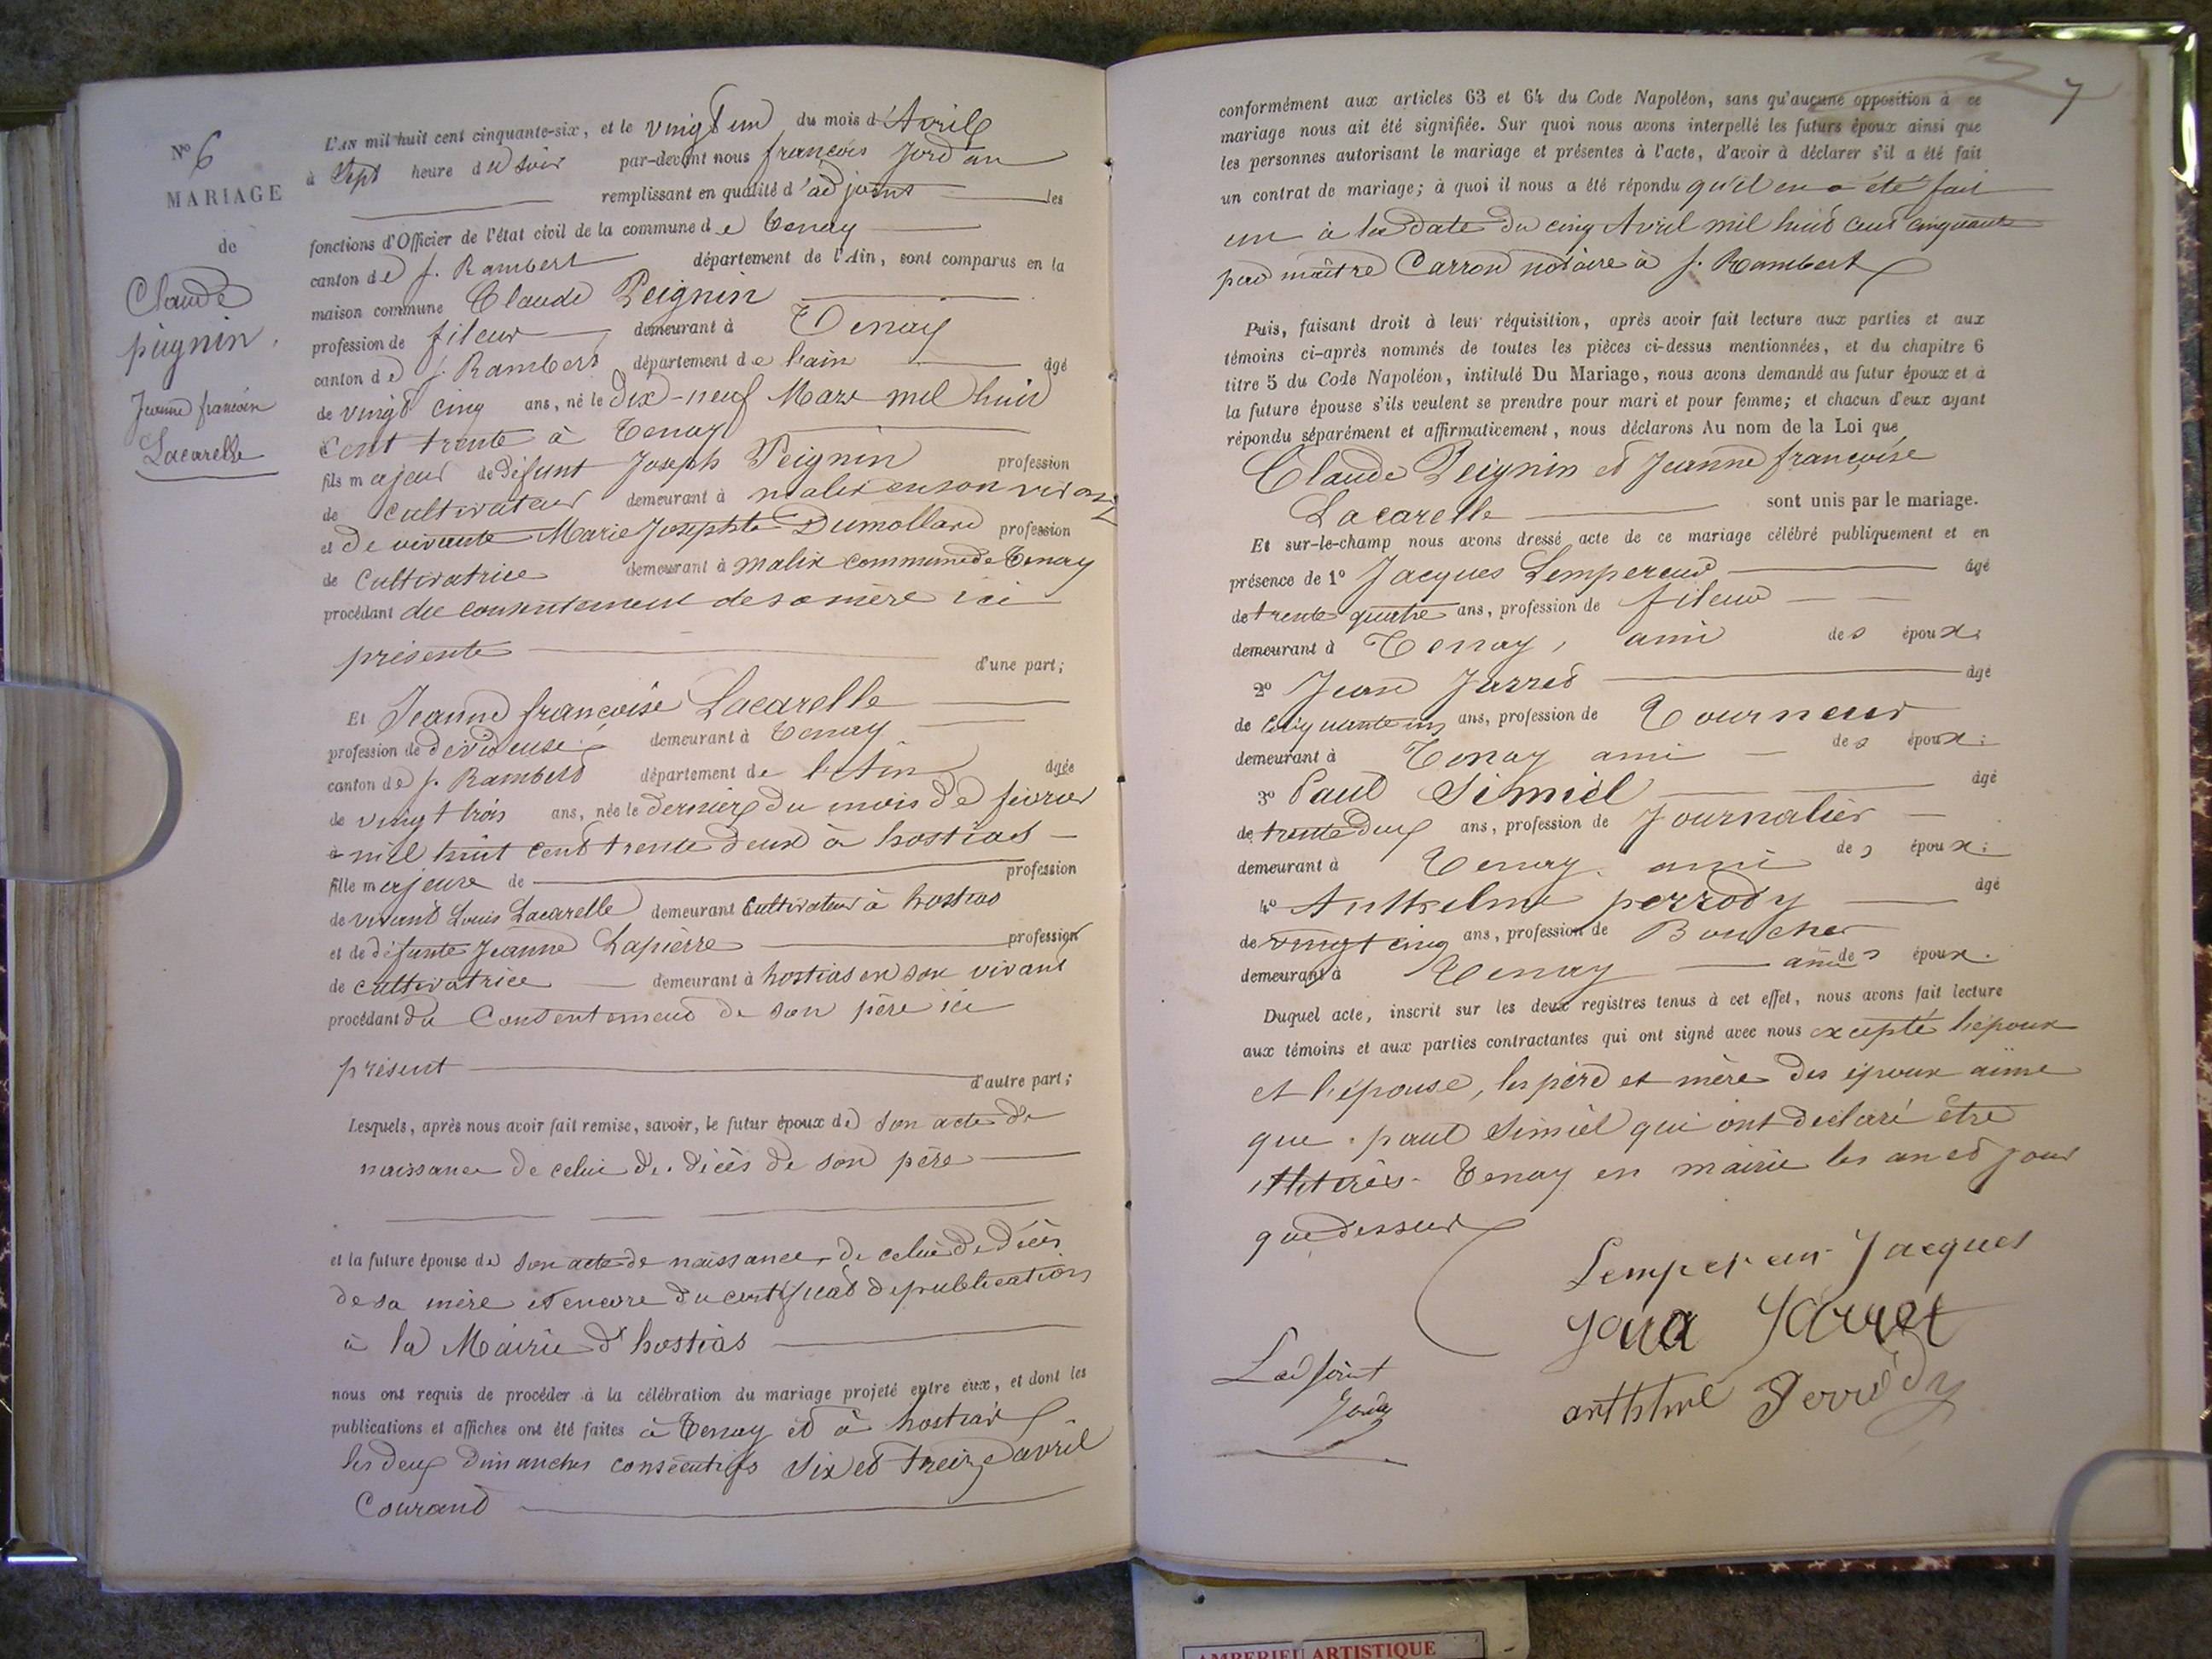 N° 6
MARIAGE
de
Claude
pignin
Jeanne francoise
Lacarelle
L'AN mil huit cent cinquante-six, et le vingt un du mois d'Avril
à Sept heure du soir par-devant nous françois Jordan
remplissant en qualité d'adjoint les
fonctions d'Officier de l'état civil de la commune de Tenay
canton de S. Rambert département de l'Ain, sont comparus en la
maison commune Claude Peignin
profession de fileur demeurant à Tenay
canton de S. Rambert département de l'ain âgé
de vingt cinq ans, né le dix-neuf Mars mil huit
Cent trente à Tenay
fils majeur de défunt Joseph Peignin profession
de Cultivateur demeurant à malix en son vivant
et de vivante Marie Josephte Dumollard profession
de Cultivatrice demeurant à malix commune de Tenay
procédant du consentement de sa mère ici
présente d'une part;
Et Jeanne françoise Lacarelle
profession de dévideuse demeurant à Tenay
canton de S. Rambert département de l'Ain âgée
de vingt trois ans, née le dernier du mois de février
à mil huit cent trente deux à hostias
fille majeure de profession
de vivant Louis Lacarelle demeurant Cultivateur à hostias
et de défunte Jeanne Lapierre profession
de cultivatrice demeurant à hostias en son vivant
procédant du Consentement de son père ici
présent d'autre part;
Lesquels, après nous avoir fait remise, savoir, le futur époux de son acte de
naissance de celui de décès de son père
et la future épouse de son acte de naissance, de celui de décès
de sa mère et encore du certificat de publication
à la Mairie d'hostias
nous ont requis de procéder à la célébration du mariage projeté entre eux, et dont les
publications et affiches ont été faites à Tenay et à hostias
les deux dimanches consécutifs six et treize avril
Courant
7
conformément aux articles 63 et 64 du Code Napoléon, sans qu'aucune opposition à ce
mariage nous ait été signifiée. Sur quoi nous avons interpellé les futurs époux ainsi que
les personnes autorisant le mariage et présentes à l'acte, d'avoir à déclarer s'il a été fait
un contrat de mariage; à quoi il nous a été répondu qu'il en a été fait
un à la date du cinq Avril mil huit cent cinquante
par maître Carron notaire à S. Rambert
Puis, faisant droit à leur réquisition, après avoir fait lecture aux parties et aux
témoins ci-après nommés de toutes les pièces ci-dessus mentionnées, et du chapitre 6
titre 5 du Code Napoléon, intitulé Du Mariage, nous avons demandé au futur époux et à
la future épouse s'ils veulent se prendre pour mari et pour femme; et chacun d'eux ayant
répondu séparément et affirmativement, nous déclarons Au nom de la Loi que
Claude Peignin et Jeanne françoise
Lacarelle sont unis par le mariage.
Et sur-le-champ nous avons dressé acte de ce mariage célébré publiquement et en
présence de 1° Jacques Lempereur âgé
de trente quatre ans, profession de fileur
demeurant à Tenay, ami des époux;
2° Jean Jarret âgé
de Cinquante un ans, profession de Tourneur
demeurant à Tenay ami des époux;
3° Paul Simiel âgé
de trente deux ans, profession de Journalier
demeurant à Tenay ami des époux;
4° Anthelme perrody âgé
de vingt cinq ans, profession de Boucher
demeurant à Tenay ami des époux.
Duquel acte, inscrit sur les deux registres tenus à cet effet, nous avons fait lecture
aux témoins et aux parties contractantes qui ont signé avec nous excepté l'époux
et l'épouse, les père et mère des époux ainsi
que paul Simiel qui ont declaré être
illitérés. Tenay en mairie les an et jour
que dessus
Lempereur Jacques
Jarret
anthelme Perrody
L'adjoint
AMBERIEU ARTISTIQUE